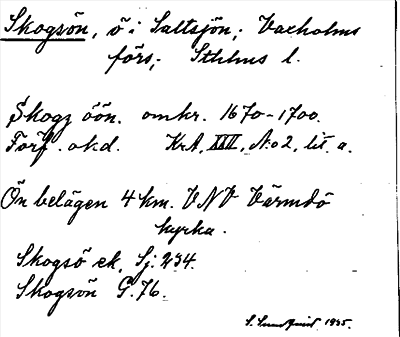 Skogsön, ö i Saltsjön; Vaxholms
förs; Sthlms l.
Skogz öön. omkr. 1670-1700.
Förf. okd. KrA, XXVI, No 2, lit. a.
Ön belägen 4 km. VNV Värmdö
kyrka.
Skogsö ek. Sj. 234.
Skogsön G. 76.
S. Sundquist 1935.